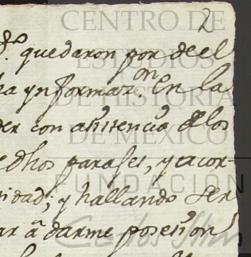 2
quedaron por de el
ynformar on en la
der con asistencia de los
dhos parajes, y acor
sidad; y hallando ser
ar a darme posesion
CENTRO DE
ESTUDIOS
DE HISTORIA
DE MEXICO
FUNDACIÓN
Carlos Slim